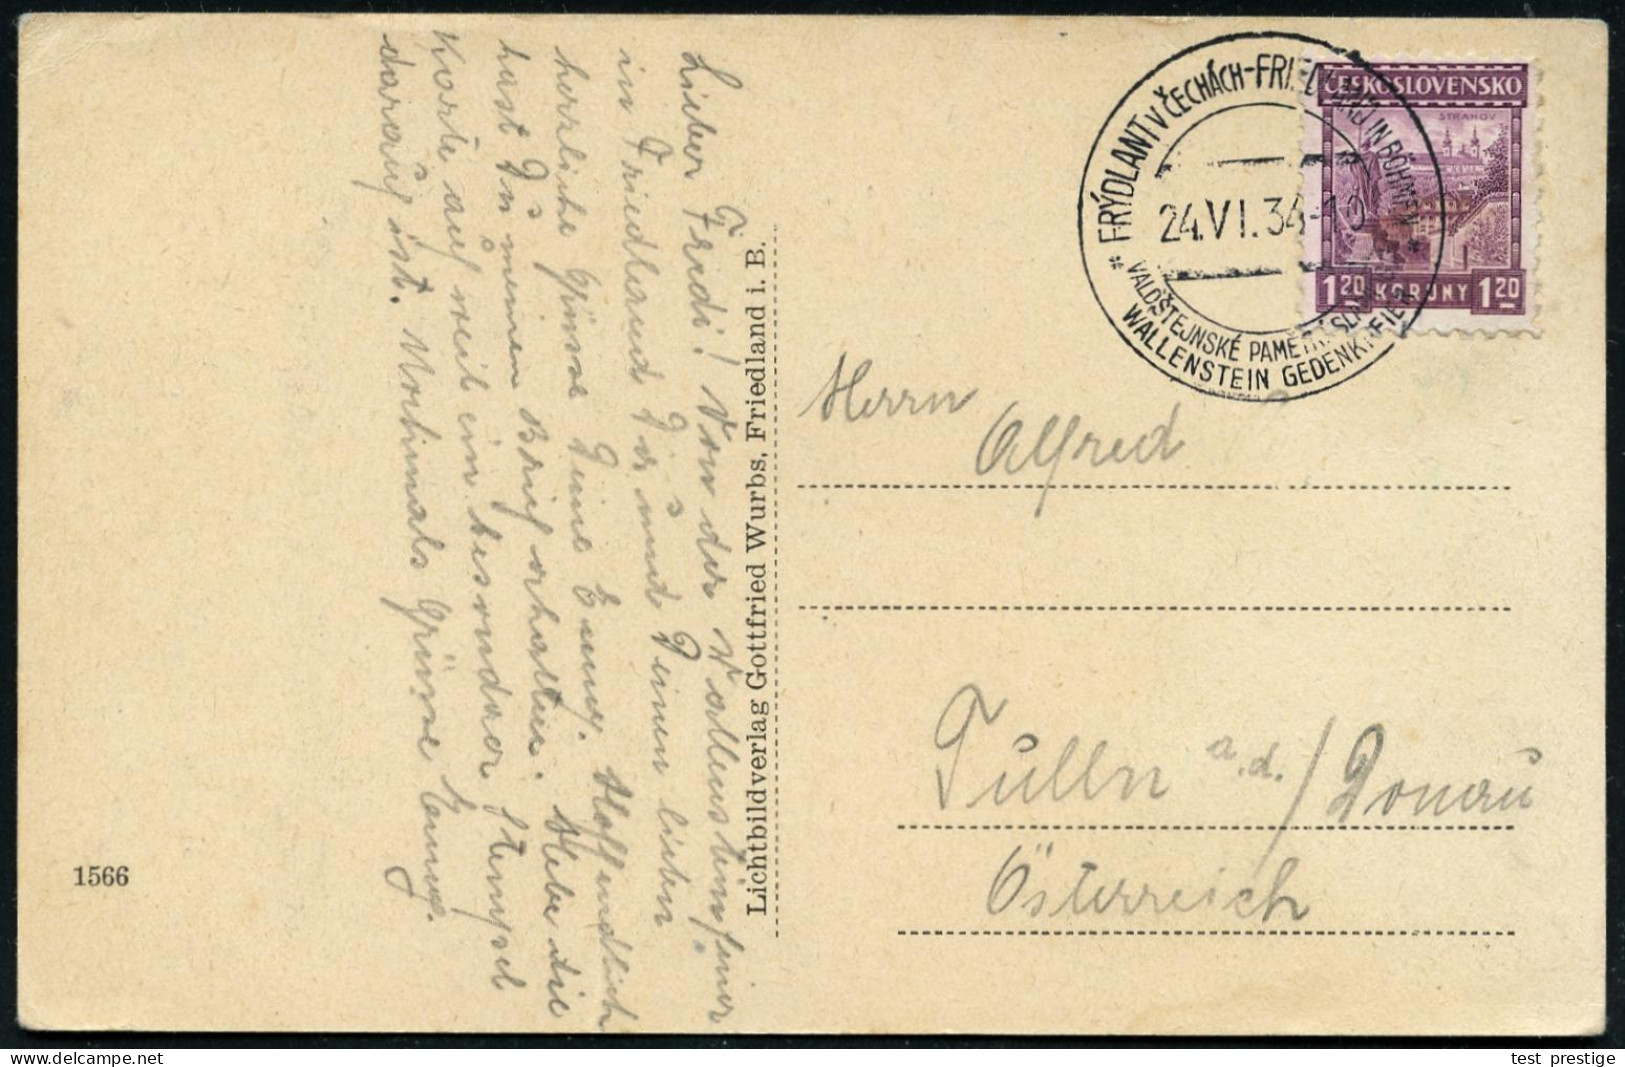 Lieber Fredi! Von der Wallensteinfeier
in Friedland Dir und Deinen lieben
herzliche Grüsse Deine Emmy. Hoffendlich
hast Du meinen Brief erhalten. Hebe die
Karte auf weil ein besonderer Stempel
darauf ist. Nochmals Grüsse Emmy.
1566
Lichtbildverlag Gottfried Wurbs, Friedland i. B.
FRÝDLANT V ČECHÁCH-FRIEDLAND IN BÖHMEN
24.VI.34-10
VALDŠTEJNSKÉ PAMĚTNÍ SLAVNOSTI
WALLENSTEIN GEDENKFEIER
ČESKOSLOVENSKO
STRAHOV
1.20 KORUNY 1.20
Herrn
Alfred
Tulln a.d./Donau
Österreich
test_prestige